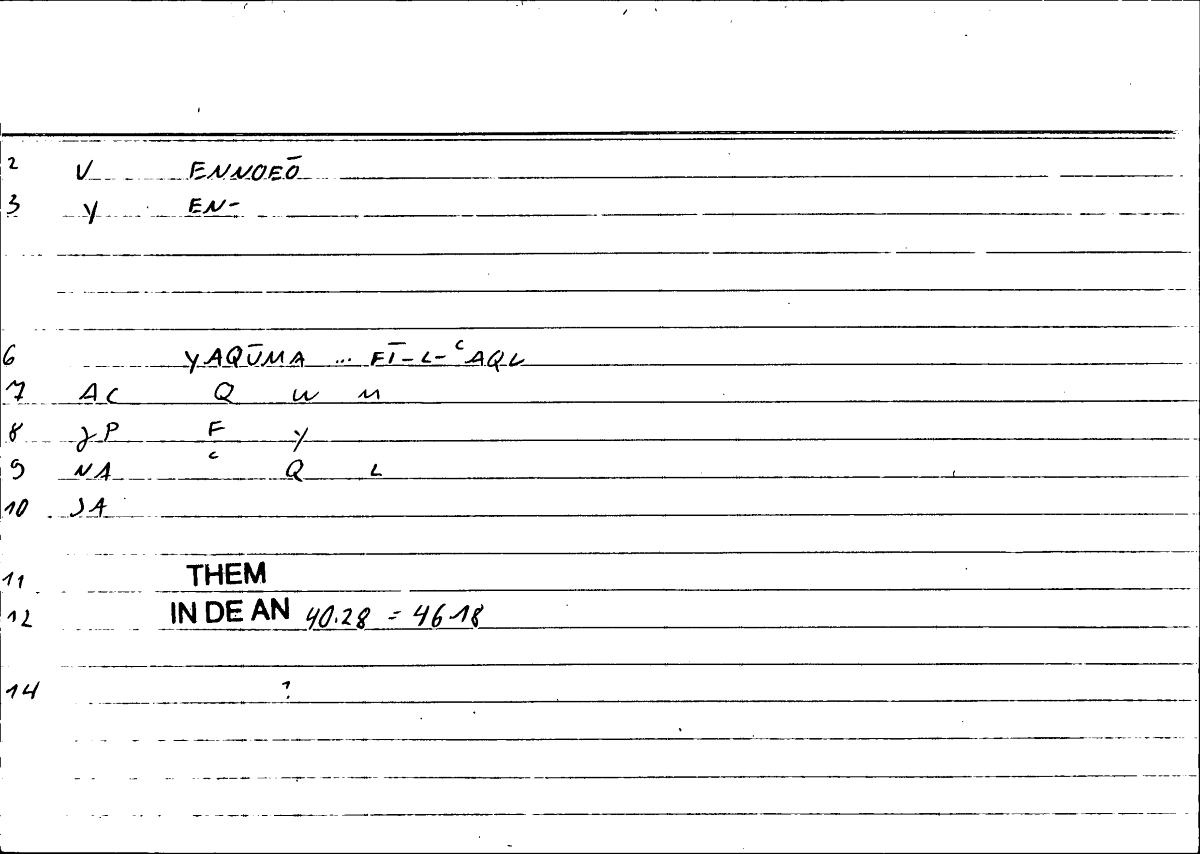 2 V ENNOEŌ
3 Y EN-
6 YAQŪMA ... FĪ-L-ʿAQL
7 AC Q W M
8 P F Y
9 NA ʿ Q L
10 JA
11 THEM
12 IN DE AN 40.28 = 46.18
14 ?